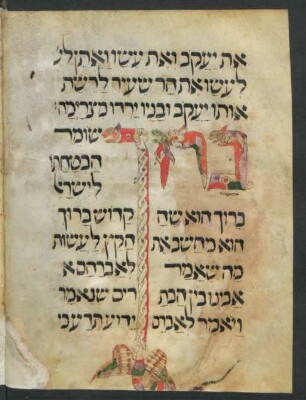 את יעקב ואת עשו ואתן לע
לעשו את הר שעיר לרשת
אותו ויעקב ובניו ירדו מצרימה
ברוך
שומר
הבטחתו
לישרא
ברוך הוא שה
קדוש ברוך
הוא מחשב את
הקץ לעשות
מה שאמר
לאברהם א
אבינו בין הבת
רים שנאמר
ויאמר לאברם
ידוע תדע כי